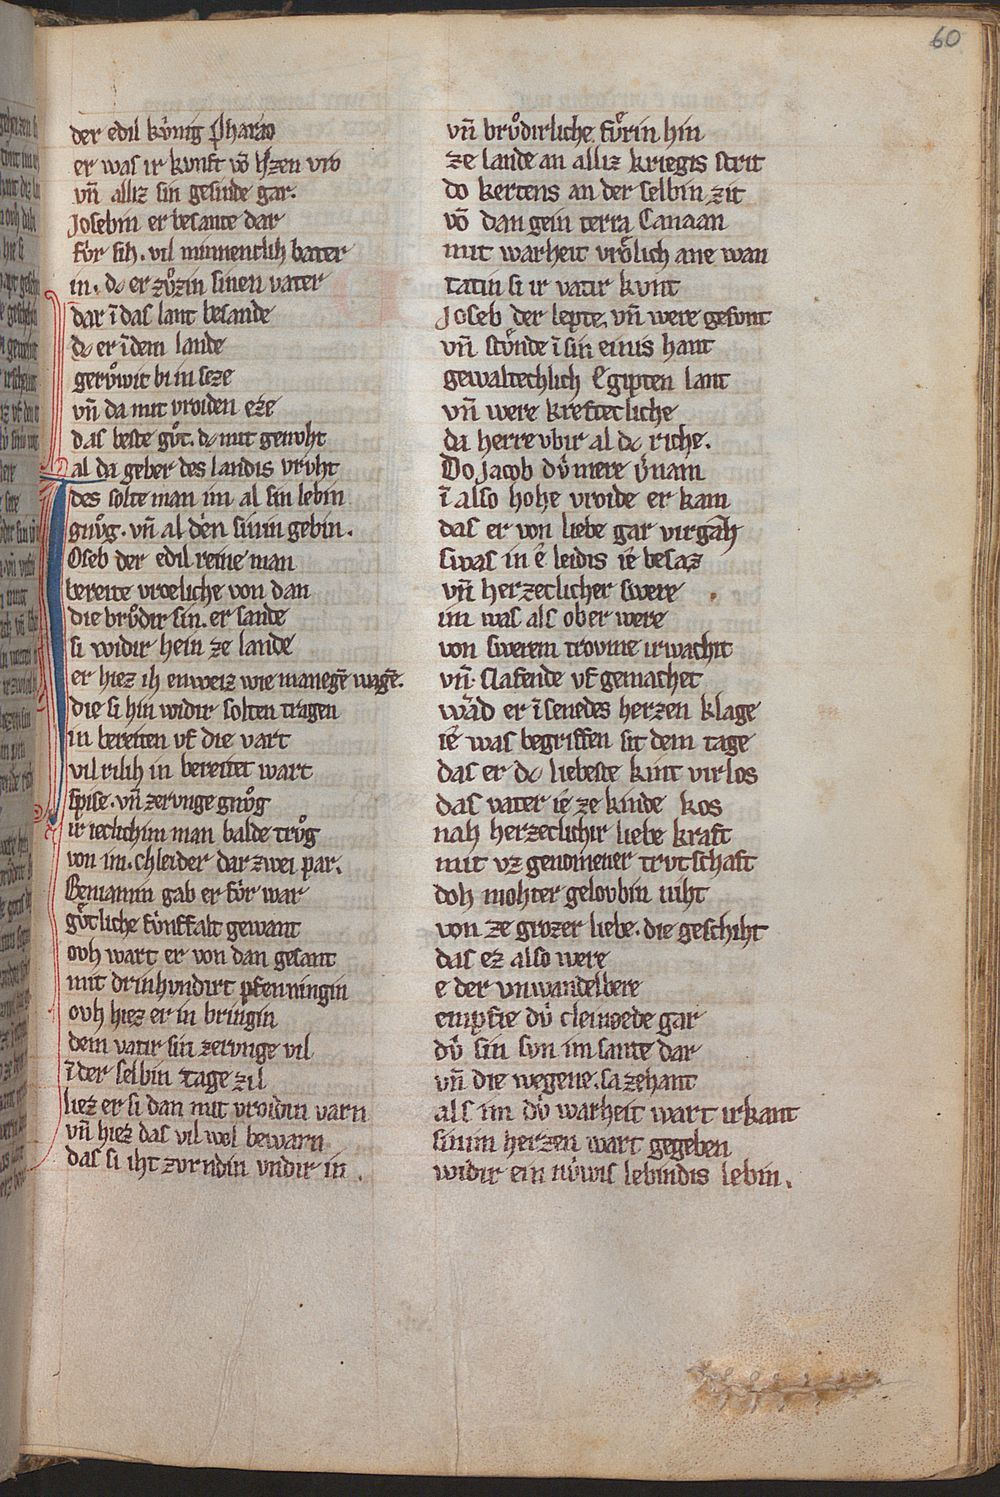 60
der edil kv́nig Pharao
er was ir kvnft võ h̾zen vro
vn̄ alliz sin gesinde gar.
Josebin er besante dar
fv́r sih. vil minnentlih bater
in. dc er zv̊zin sinen vater
dar ı̄ das lant besande
dc er ı̄ dem lande
gerv̊wit bi in seze
vn̄ da mit vroiden eze
das beste gv̊t. dc mit genvht
al da geber des landis vrvht
des solte man im al sin lebin
gnv̊g. vn̄ al den sinin gebin.
Joseb der edil reine man
bereite vroeliche von dan
die brv̊dir sin. er sande
si widir hein ze lande
er hiez ih enweiz wie manegē wagē.
die si hin widir solten tragen
in bereiten vf die vart
vil rilih in bereitet wart
spise. vn̄ zervnge gnv̊g
ir ieclichim man balde trv̊g
von im. chleider dar zwei par.
Beniamin gab er fv́r war
gv̊tliche fv́nffalt gewant
ovh wart er von dan gesant
mit drinhvndirt pfenningin
ovh hiez er in bringin
dem vatir sin zervnge vil
ı̄ der selbin tage zil
liez er si dan mit vroidin varn
vn̄ hiez das vil wol bewarn
das si iht zvrndin vndir in.
vn̄ brv̊dirliche fv̊rin hin
ze lande an alliz kriegis strit
do kertens an der selbin zit
võ dan gein terra Canaan
mit warheit vrȯlich ane wan
tatin si ir vatir kvnt
Joseb der lepte, vn̄ were gesvnt
vn̄ stv̊nde ı̄ sin einis hant
gewaltechlich Egipten lant
vn̄ were kreftecliche
da herre vbir al dc riche.
Do Jacob dv́ mere v̾nam
ı̄ also hohe vroide er kam
das er von liebe gar virgaz
swas in e leidis ie besaz
vn̄ herzeclicher swere
im was als ob er were
von swerem trovme irwachit
vn̄. slafende vf gemachet
ward er ı̄ senedes herzen klage
ie was begriffen sit dem tage
das er dc liebeste kint virlos
das vater ie ze kinde kos
nah herzeclichir liebe kraft
mit vz genomener trvtschaft
doh mohter gelovbin niht
von ze grozer liebe. die geschiht
das ez also were
e der vnwandelbere
empfie dv́ cleinoede gar
dv́ sin svn im sante dar
vn̄ die wegene. sa zehant
als im dv́ warheit wart irkant
sinim herzen wart gegeben
widir ein nv́wis lebindis lebin.